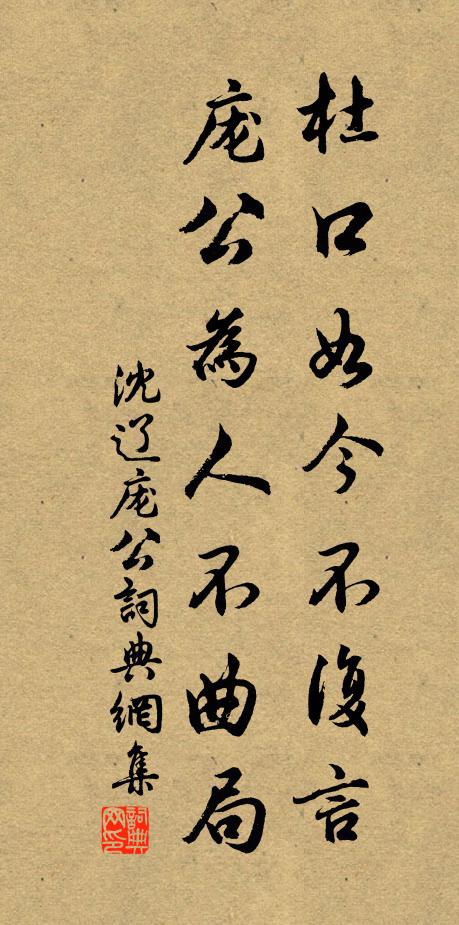 杜口如今不復言
庞公為人不曲局
沈辽庞公詞典網集
詞典网印